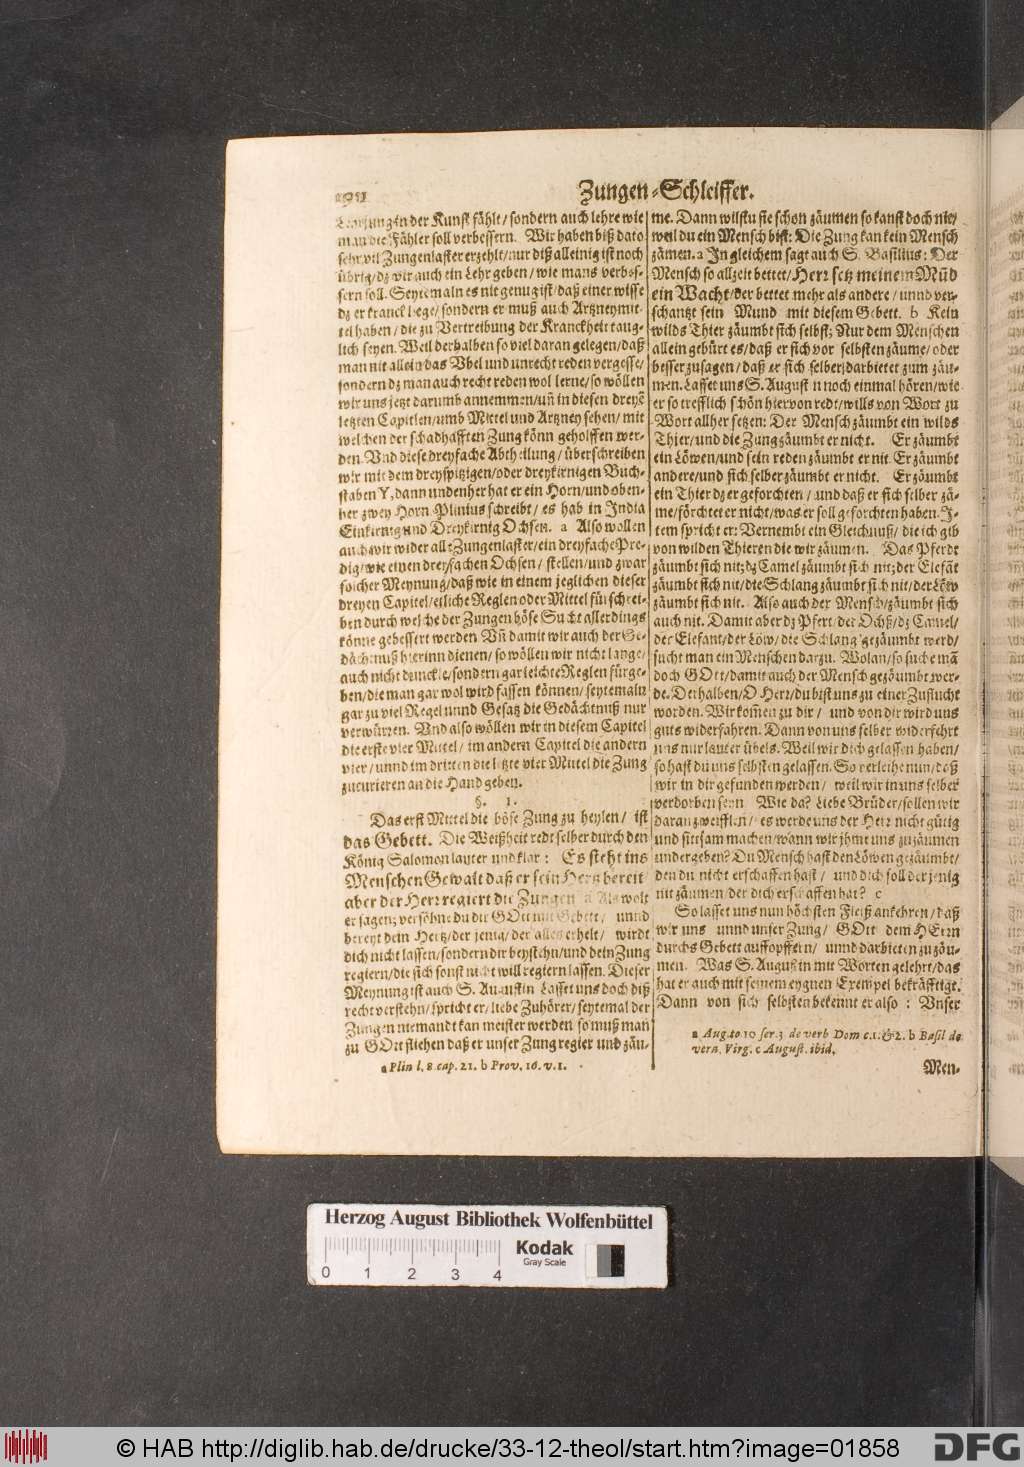 Zungen-Schleiffer.
der Kunst fählt/sondern auch lehre wie
man die Fähler soll verbessern. Wir haben biß dato
sehr vil Zungenlaster erzehlt/nur diß alleinig ist noch
übrig/dz wir auch ein Lehr geben/wie mans verbes-
sern soll. Seytemaln es nit genug ist/daß einer wisse
dz er kranck liege/sondern er muß auch Artzneymit-
tel haben/die zu Vertreibung der Kranckheit taug-
lich seyen. Weil derhalben so viel daran gelegen/daß
man nit allein das Vbel und unrecht reden vergesse/
sondern dz man auch recht reden wol lerne/so wöllen
wir uns jetzt darumb annemmen/uñ in diesen dreyẽ
letzten Capitlen/umb Mittel und Artzney sehen/mit
welchen der schadhafften Zung könn geholffen wer-
den. Vnd diese dreyfache Abtheilung/überschreiben
wir mit dem dreyspitzigen/oder dreykirnigen Buch-
staben Y, dann undenher hat er ein Horn/und oben-
her zwey Horn. Plinius schreibt/es hab in India
Einkirnig und Dreykirnig Ochsen. a Also wollen
auch wir wider alle Zungenlaster/ein dreyfache Pre-
dig/wie einen dreyfachen Ochsen/stellen/und zwar
solcher Meynung/daß wie in einem jeglichen dieser
dreyen Capitel/etliche Reglen oder Mittel fürschrei-
ben durch welche der Zungen böse Sucht allerdings
könne gebessert werden. Vñ damit wir auch der Ge-
dächtnuß hierinn dienen/so wöllen wir nicht lange/
auch nicht dunckle/sondern gar leichte Reglen fürge-
ben/die man gar wol wird fassen können/seytemaln
gar zu viel Regel unnd Gesatz die Gedächtnuß nur
verwürren. Vnd also wöllen wir in diesem Capitel
die erste vier Mittel/im andern Capitel die andern
vier/unnd im dritten die letzte vier Mittel die Zung
zucurieren an die Hand geben.
§. 1.
Das erst Mittel die böse Zung zu heylen/ist
das Gebett. Die Weißheit redt selber durch den
König Salomon lauter und klar: Es steht ins
Menschen Gewalt daß er sein Hertz bereit
aber der Herr regiert die Zungen. Als wolt
er sagen; versöhne du dir GOtt mit Gebett/unnd
bereyt dein Hertz/der jenig/der alles erhelt/wirdt
dich nicht lassen/sondern dir beystehn/und dein Zung
regiern/die sich sonst nicht will regiern lassen. Dieser
Meynung ist auch S. Augustin. Lasset uns doch diß
recht verstehn/spricht er/liebe Zuhörer/seytemal der
Zungen niemandt kan meister werden so muß man
zu GOtt fliehen daß er unser Zung regier und zäu-
a Plin l. 8 cap. 21. b Prov. 16. v. 1.
me. Dann wilstu sie schon zäumen so kanst doch nie/
weil du ein Mensch bist: Die Zung kan kein Mensch
zämen. a In gleichem sagt auch S. Basilius: Der
Mensch so allzeit bettet/Herr setz meinem Mũd
ein Wacht/der bettet mehr als andere/unnd ver-
schantzt sein Mund mit diesem Gebett. b Kein
wilds Thier zäumbt sich selbst; Nur dem Menschen
allein gebürt es/daß er sich vor selbsten zäume/oder
besser zusagen/daß er sich selber darbietet zum zäu-
men. Lasset uns S. August n noch einmal hören/wie
er so trefflich schön hiervon redt/wills von Wort zu
Wort allher setzen: Der Mensch zäumbt ein wilds
Thier/und die Zung zäumbt er nicht. Er zäumbt
ein Löwen/und sein reden zäumbt er nit. Er zäumbt
andere/und sich selber zäumbt er nicht. Er zäumbt
ein Thier dz er geforchten/und daß er sich selber zä-
me/förchtet er nicht/was er soll geforchten haben. J-
tem spricht er: Vernembt ein Gleichnuß/die ich gib
von wilden Thieren die wir zäumen. Das Pferdt
zäumbt sich nit; dz Camel zäumbt sich nit; der Elefãt
zäumbt sich nit/die Schlang zäumbt sich nit/der Löw
zäumbt sich nit. Also auch der Mensch/zäumbt sich
auch nit. Damit aber dz Pfert/der Ochß/dz Camel/
der Elefant/der Löw/die Schlang gezäumbt werd/
sucht man ein Menschen darzu. Wolan/so suche mã
doch GOtt/damit auch der Mensch gezäumbt wer-
de. Derhalben/O Herr/du bist uns zu einer Zuflucht
worden. Wir kom̃en zu dir/und von dir wird uns
guts widerfahren. Dann von uns selber widerfehrt
uns nur lauter übels. Weil wir dich gelassen haben/
so hast du uns selbsten gelassen. So verleihe nun/daß
wir in dir gefunden werden/weil wir in uns selber
verdorben seyn. Wie da? Liebe Brüder/sollen wir
daran zweifflen/es werde uns der Herr nicht gütig
und sittsam machen/wann wir jhme uns zu zäumen
undergeben? Du Mensch hast den Löwen gezäumbt/
den du nicht erschaffen hast/und dich soll der jenig
nit zäumen/der dich erschaffen hat? c
So lasset uns nun höchsten Fleiß ankehren/daß
wir uns unnd unser Zung/GOtt dem HErrn
durchs Gebett auffopffern/unnd darbieten zu zäu-
men. Was S. Augustin mit Worten gelehrt/das
hat er auch mit seinem eygnen Exempel bekräfftigt.
Dann von sich selbsten bekennt er also: Vnser
a Aug. to 10 ser. 3 de verb Dom c. 1. & 2. b Basil de
vera. Virg. c August. ibid.
Men-
Herzog August Bibliothek Wolfenbüttel
0 1 2 3 4
Kodak
Gray Scale
© HAB http://diglib.hab.de/drucke/33-12-theol/start.htm?image=01858
DFG